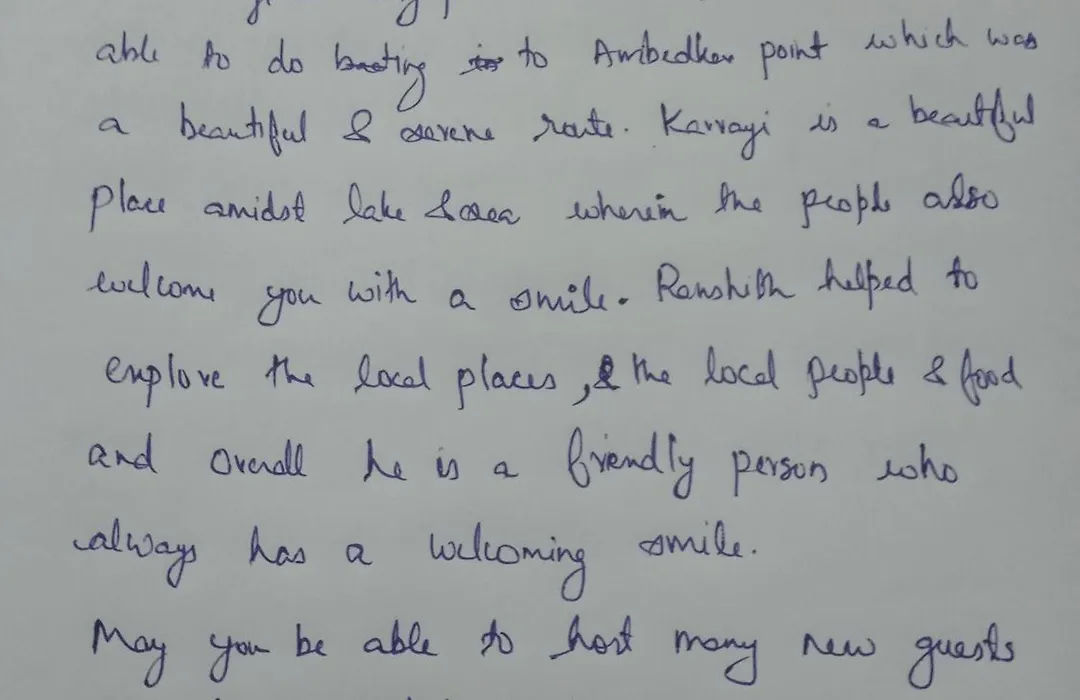 able to do boating to Ambedkar point which was
a beautiful & serene route. Kavvayi is a beautiful
place amidst lake & sea wherein the people also
welcome you with a smile. Ranshith helped to
explore the local places, & the local people & food
and overall he is a friendly person who
always has a welcoming smile.
May you be able to host many new guests